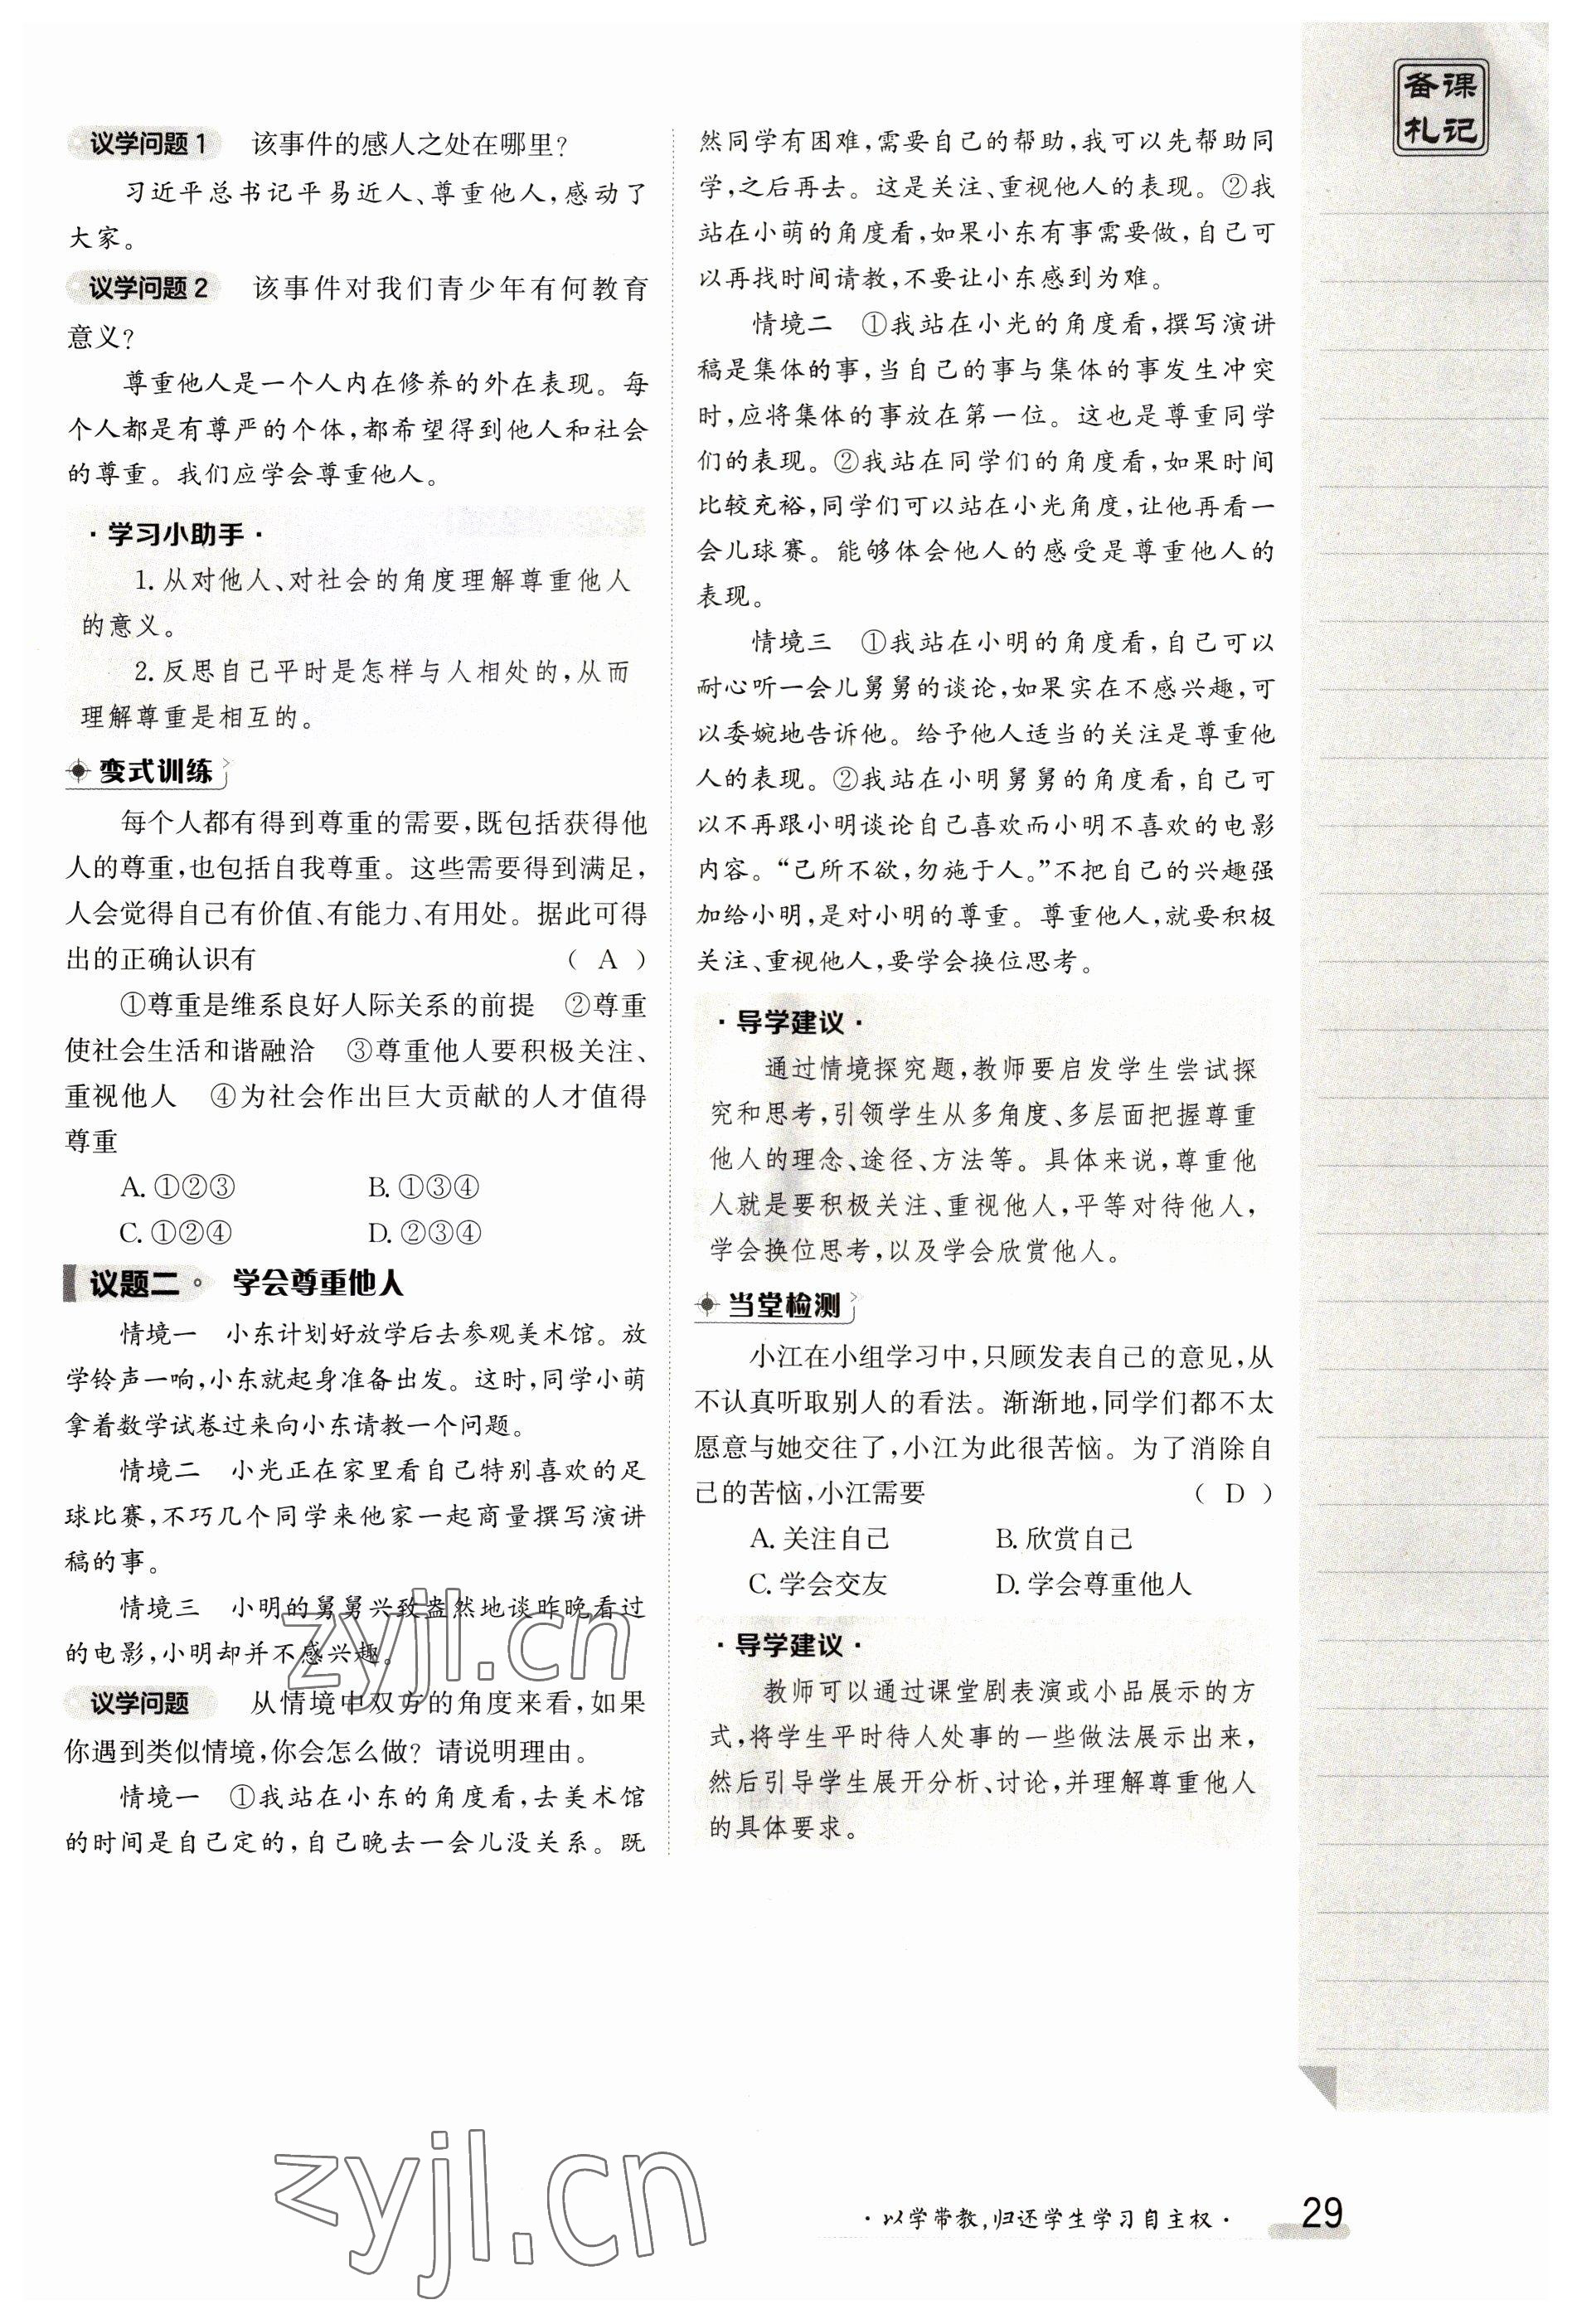 议学问题1 该事件的感人之处在哪里？
习近平总书记平易近人、尊重他人，感动了
大家。
议学问题2 该事件对我们青少年有何教育
意义？
尊重他人是一个人内在修养的外在表现。每
个人都是有尊严的个体，都希望得到他人和社会
的尊重。我们应学会尊重他人。
·学习小助手·
1. 从对他人、对社会的角度理解尊重他人
的意义。
2. 反思自己平时是怎样与人相处的，从而
理解尊重是相互的。
变式训练
每个人都有得到尊重的需要，既包括获得他
人的尊重，也包括自我尊重。这些需要得到满足，
人会觉得自己有价值、有能力、有用处。据此可得
出的正确认识有 （ A ）
①尊重是维系良好人际关系的前提 ②尊重
使社会生活和谐融洽 ③尊重他人要积极关注、
重视他人 ④为社会作出巨大贡献的人才值得
尊重
A. ①②③ B. ①③④
C. ①②④ D. ②③④
议题二 学会尊重他人
情境一 小东计划好放学后去参观美术馆。放
学铃声一响，小东就起身准备出发。这时，同学小萌
拿着数学试卷过来向小东请教一个问题。
情境二 小光正在家里看自己特别喜欢的足
球比赛，不巧几个同学来他家一起商量撰写演讲
稿的事。
情境三 小明的舅舅兴致盎然地谈昨晚看过
的电影，小明却并不感兴趣。
议学问题 从情境中双方的角度来看，如果
你遇到类似情境，你会怎么做？请说明理由。
情境一 ①我站在小东的角度看，去美术馆
的时间是自己定的，自己晚去一会儿没关系。既
然同学有困难，需要自己的帮助，我可以先帮助同
学，之后再去。这是关注、重视他人的表现。②我
站在小萌的角度看，如果小东有事需要做，自己可
以再找时间请教，不要让小东感到为难。
情境二 ①我站在小光的角度看，撰写演讲
稿是集体的事，当自己的事与集体的事发生冲突
时，应将集体的事放在第一位。这也是尊重同学
们的表现。②我站在同学们的角度看，如果时间
比较充裕，同学们可以站在小光角度，让他再看一
会儿球赛。能够体会他人的感受是尊重他人的
表现。
情境三 ①我站在小明的角度看，自己可以
耐心听一会儿舅舅的谈论，如果实在不感兴趣，可
以委婉地告诉他。给予他人适当的关注是尊重他
人的表现。②我站在小明舅舅的角度看，自己可
以不再跟小明谈论自己喜欢而小明不喜欢的电影
内容。“己所不欲，勿施于人。”不把自己的兴趣强
加给小明，是对小明的尊重。尊重他人，就要积极
关注、重视他人，要学会换位思考。
·导学建议·
通过情境探究题，教师要启发学生尝试探
究和思考，引领学生从多角度、多层面把握尊重
他人的理念、途径、方法等。具体来说，尊重他
人就是要积极关注、重视他人，平等对待他人，
学会换位思考，以及学会欣赏他人。
当堂检测
小江在小组学习中，只顾发表自己的意见，从
不认真听取别人的看法。渐渐地，同学们都不太
愿意与她交往了，小江为此很苦恼。为了消除自
己的苦恼，小江需要 （ D ）
A. 关注自己 B. 欣赏自己
C. 学会交友 D. 学会尊重他人
·导学建议·
教师可以通过课堂剧表演或小品展示的方
式，将学生平时待人处事的一些做法展示出来，
然后引导学生展开分析、讨论，并理解尊重他人
的具体要求。
备课
札记
zyjl.cn
zyjl.cn
·以学带教，归还学生学习自主权· 29